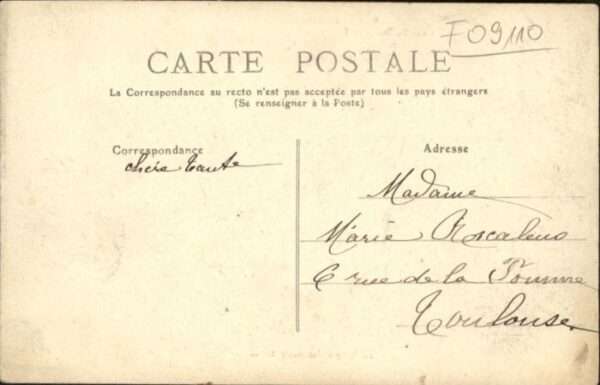 F09110
CARTE POSTALE
La Correspondance au recto n'est pas acceptée par tous les pays étrangers
(Se renseigner à la Poste)
Correspondance
chère tante
Adresse
Madame
Marie
6 rue de la Pomme
Toulouse